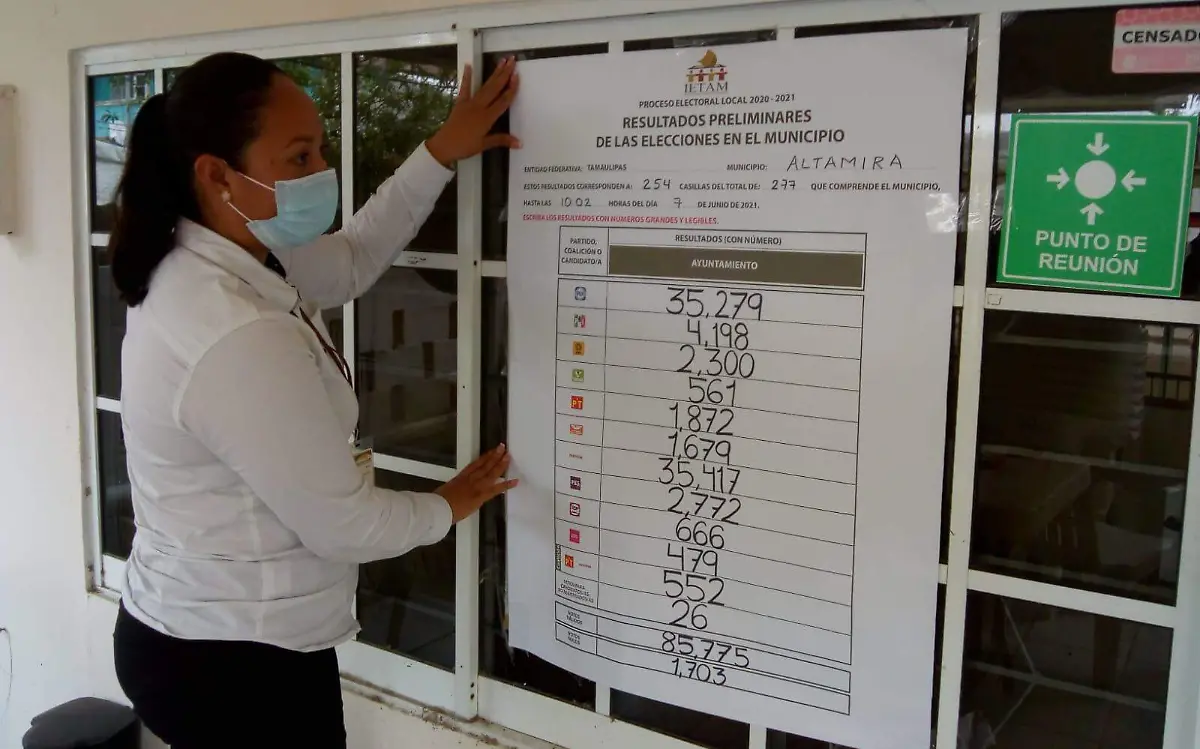 IETAM
PROCESO ELECTORAL LOCAL 2020 - 2021
RESULTADOS PRELIMINARES
DE LAS ELECCIONES EN EL MUNICIPIO
ENTIDAD FEDERATIVA: TAMAULIPAS MUNICIPIO: ALTAMIRA
ESTOS RESULTADOS CORRESPONDEN A: 254 CASILLAS DEL TOTAL DE: 277 QUE COMPRENDE EL MUNICIPIO,
HASTA LAS 1002 HORAS DEL DÍA 7 DE JUNIO DE 2021.
ESCRIBA LOS RESULTADOS CON NÚMEROS GRANDES Y LEGIBLES.
PARTIDO,
COALICIÓN O
CANDIDATO/A
RESULTADOS (CON NÚMERO)
AYUNTAMIENTO
35,279
4,198
2,300
561
PT 1,872
1,679
35,417
2,772
666
479
PT 552
26
85,775
1,703
CENSADO
PUNTO DE
REUNIÓN